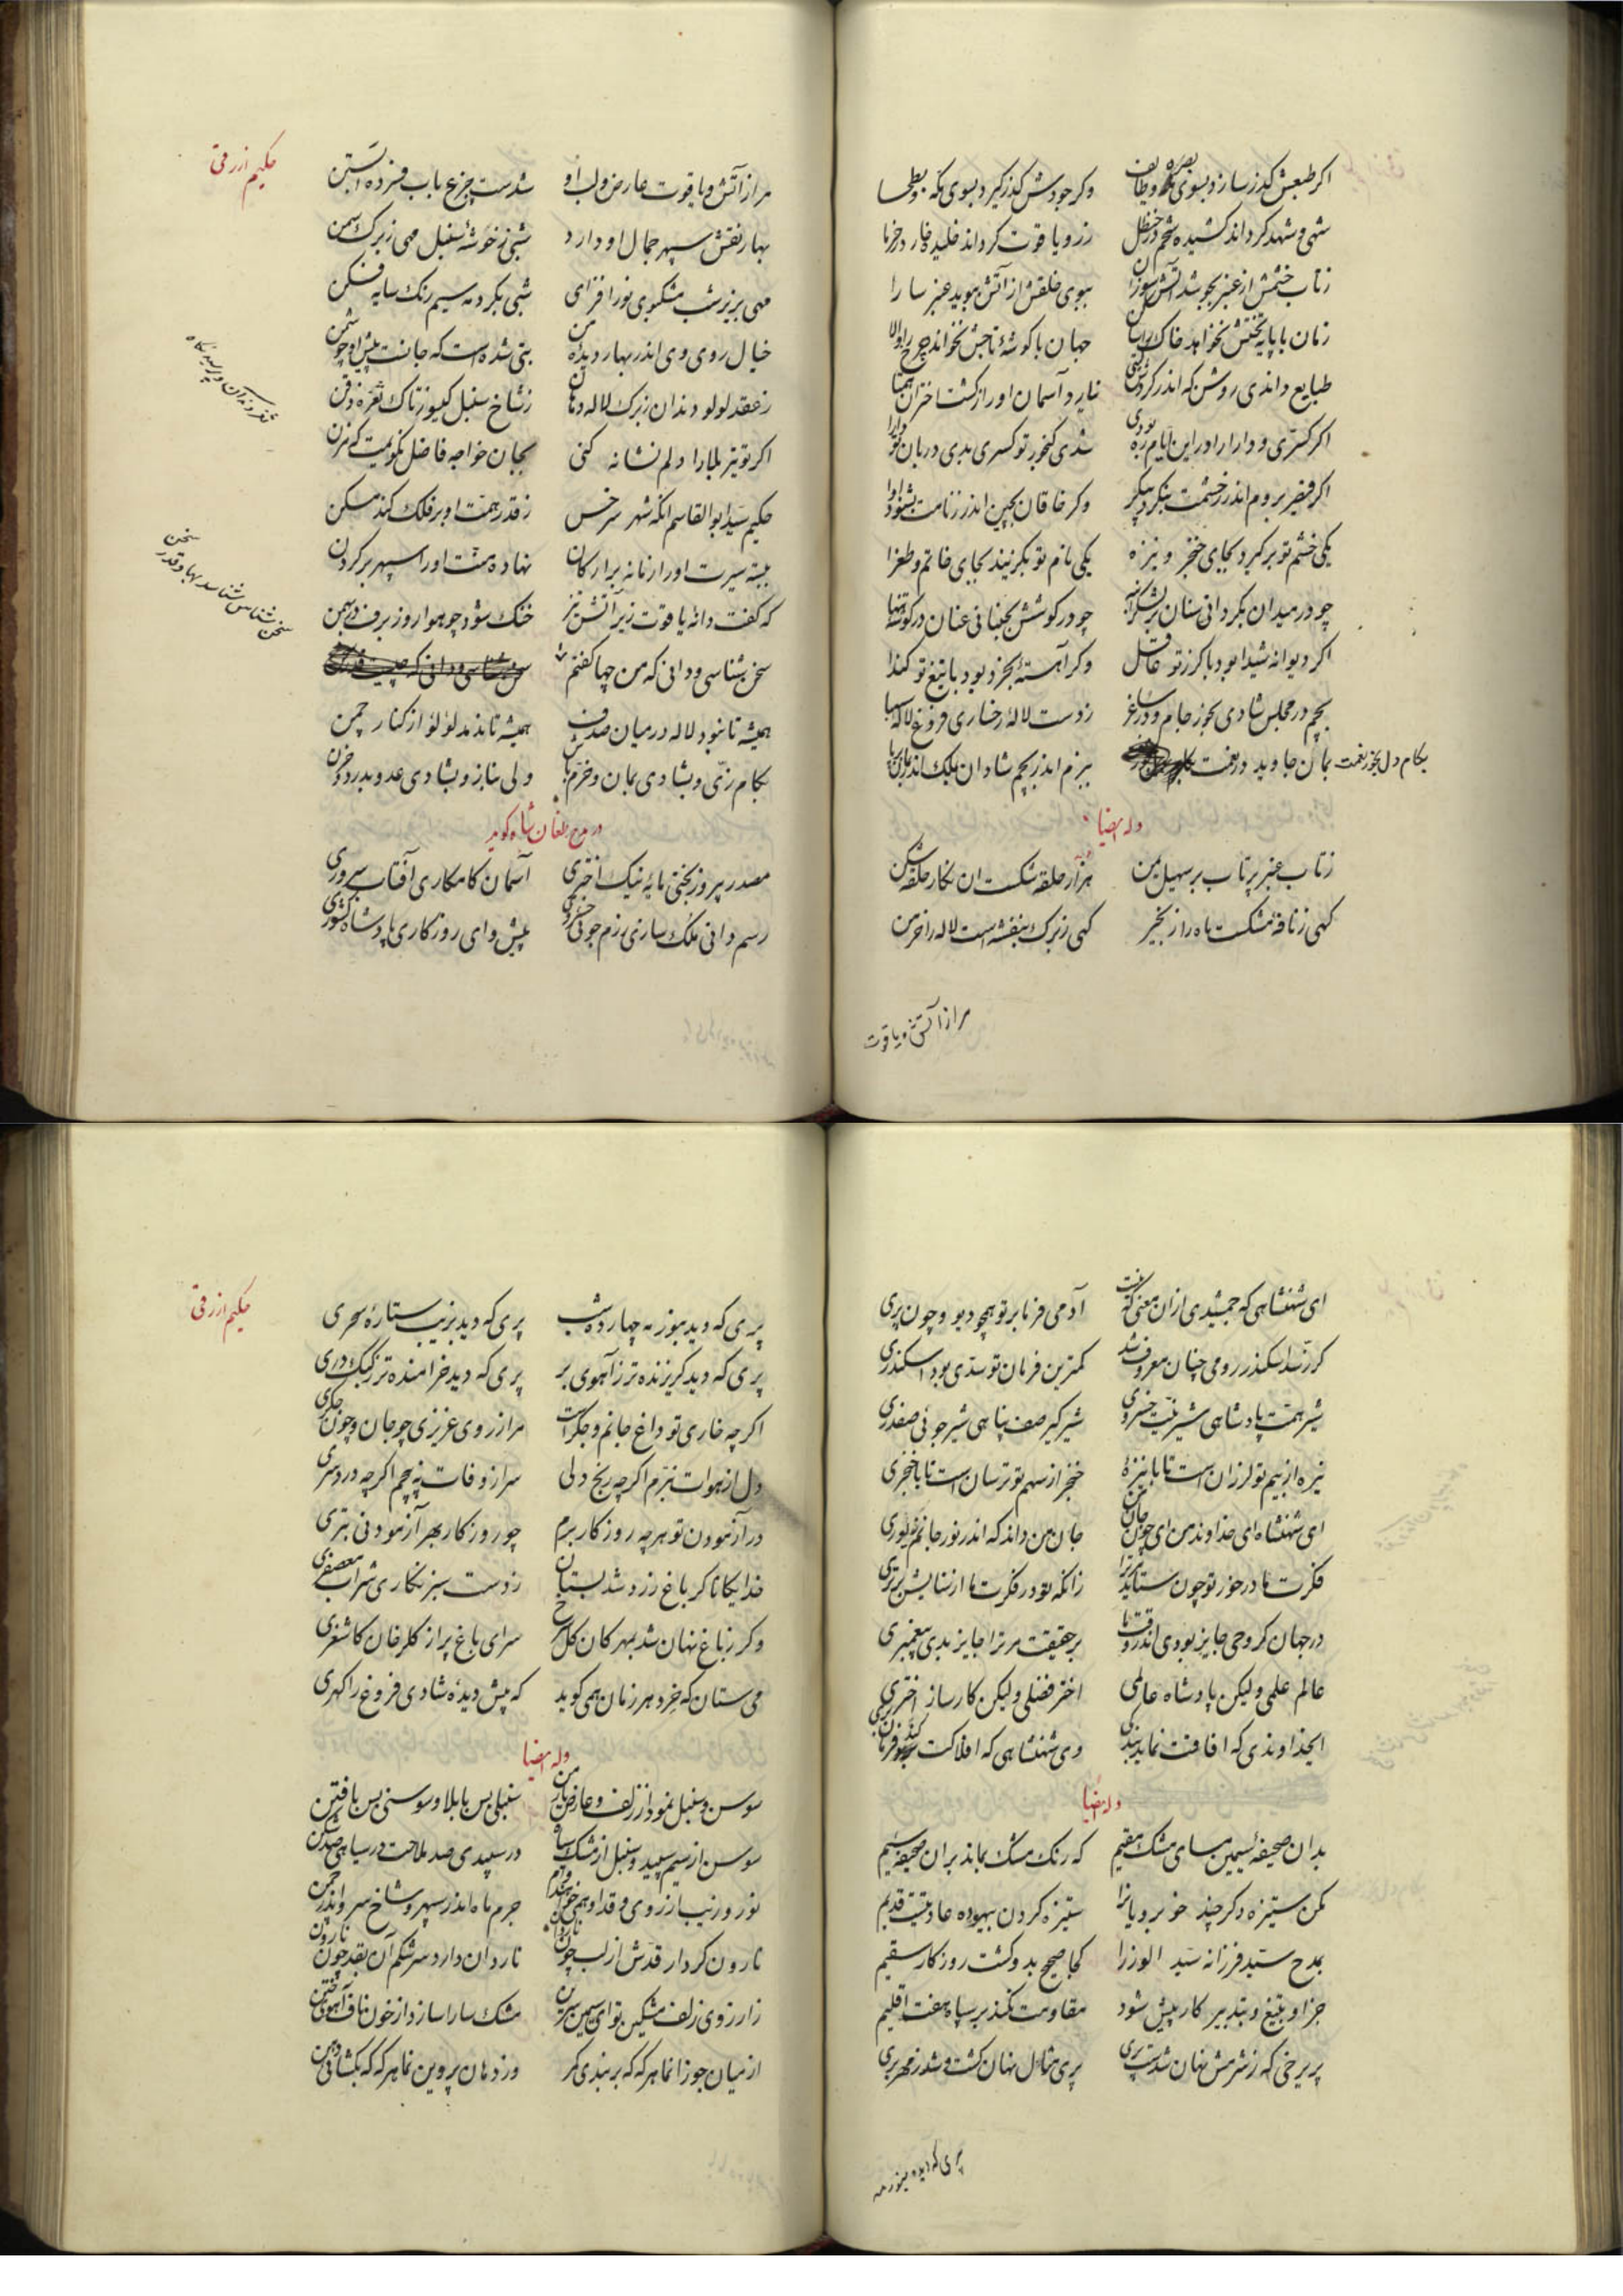 اکر طبعش کذر سازد بسوی بصره و طایف
وکر جودش کذر کیرد بسوی مکه و بطحا
شهی و شهد کرداند کشیده شحم در حنظل
زر و یاقوت کرداند خلیده خار در خرما
زتاب خشمش از عنبر بجوشد آتش سوزان
ببوی خلقش از آتش ببوید عنبر سارا
زمان با پایه تختش نخواند خاک را ساکن
جهان با کوشهٔ تاجش نخواند چرخ را والا
طبایع داندی روشن که اندر کردش کیتی
نیارد آسمان او را ز کشت اختران همتا
اکر کسری و دارا را در این ایام ره بودی
شدی کنجور تو کسری بدی دربان تو دارا
اکر قیصر بروم اندر ز خشمت بنکرد پیکر
وکر خاقان بچین اندر ز نامت بشنود آوا
یکی خشم تو برکیرد بجای خنجر و نیزه
یکی نام تو بکزیند بجای خاتم و طغرا
چو در میدان بکردانی سنان بر لشکر انبه
چو در کوشش بجنبانی عنان در کوشه تنها
اکر دیوانه شیدا بود با کرز تو عاقل
وکر آهسته بخرد بود با تیغ تو کندا
بچم در مجلس شادی بخور جام و در ساغر
ز دست لاله رخساری فروغ لاله سیما
بکام دل بخور نعمت بمان جاوید در نعمت
ببزم اندر بچم شادان بملک اندر بمان برنا
وله ایضا
زتاب عنبر پرتاب بر سهیل یمن
هزار حلقه شکست ان نکار حلقه شکن
کهی ز نافهٔ مشکست ماه را زنجیر
کهی ز برک بنفشه است لاله را خرمن
مرا ز آتش و یاقوت
حکیم ازرقی
مرا ز آتش و یاقوت عارض و لب او
شدست جزع بآب فسرده آبستن
بهار نقش سپهر جمال او دارد
شبی ز خوشهٔ سنبل مهی ز برک سمن
مهی بزیر شب مشکبوی نور افزای
شبی بکرد مه سیم رنک سایه فکن
خیال روی وی اندر بهار دیدهٔ من
بتی شده است که جانست پیش او چو شمن
ز عقد لولو دندان ز برک لاله دهان
ز شاخ سنبل کیسو ز تاک نقره ذقن
اکر تو تیر بلا را دلم نشانه کنی
بجان خواجه فاضل نکویمت که مزن
حکیم سید ابوالقاسم انکه شهر سرخس
ز قدر همت او بر فلک کند مسکن
ببسته سیرت او را زمانه بر ارکان
نهاده منت او را سپهر بر کردن
که کفت دانهٔ یاقوت زیر آتش تیز
خنک شود چو هوا روز برف در بهمن
سخن شناسی و دانی که من چها کفتم
سخن شناس شناسد بها و قدر سخن
همیشه تا نبود لاله در میان صدف
همیشه تا ندمد لؤلؤ از کنار چمن
بکام زی و بشادی بمان و خرم باش
ولی بناز و بشادی عدو بدرد و حزن
در مدح طغان شاه کوید
مصدر پیروز بختی مایهٔ نیک اختری
آسمان کامکاری آفتاب سروری
رسم دانی ملک سازی رزم جوئی خسروی
پیشوای روزکاری پادشاه کشوری
ای شهنشاهی که جمشیدی از ان معنی که هست
آدمی فرمانبر تو همچو دیو و چون پری
کر ز سد اسکندر رومی چنان معروف شد
کمترین فرمان تو سدی بود اسکندری
شیر همت پادشاهی شیر نیت خسروی
شیر کیر صف پناهی شیر جوئی صفدری
نیزه از بیم تو لرزان است تا با نیزهٔ
خنجر از سهم تو ترسان است تا با خنجری
ای شهنشاه ای خداوند من ای چون جان من
جان من داند که اندر نور جانم نوری
فکرت ما در خور تو چون ستاید مر ترا
زانکه تو در فکرت ما از ستایش برتری
در جهان کر وحی جایز بودی اندر وقت ما
بر حقیقت مر ترا جایز بدی پیغمبری
عالم علمی ولیکن پادشاه عالمی
اختر فضلی ولیکن کارساز اختری
ایخداوندی که افاقت نماید بندکی
وی شهنشاهی که افلاکت کند فرمانبری
وله ایضا
بدان صحیفهٔ سیمین مسای مشک مقیم
که رنک مشک بماند بران صحیفه سیم
مکن ستیزه دکر چند خوبرویانرا
ستیزه کردن بیهوده عادتیست قدیم
بمدح سید فرزانه سید الوزرا
کجا صحیح بدو کشت روزکار سقیم
جز او بتیغ و بتدبیر کار پیش شود
مقاومت نکند بر سپاه هفت اقلیم
پریرخی که ز شرمش نهان شدست پری
پری مثال نهان کشت و شد ز مهر بری
پری که دید بنور مه
حکیم ازرقی
پری که دید بنور مه چهارده شب
پری که دید بزیب ستارهٔ سحری
پری که دید کریزنده تر ز آهوی بر
پری که دید خرامنده تر ز کبک دری
اکرچه خاری تو داغ جانم و جکر است
مرا ز روی عزیزی چو جان و چون جکری
دل از هوات نبرم اکرچه رنج دلی
سر از وفات نپیچم اکرچه درد سری
در آزمودن تو هر چه روزکار برم
چو روزکار بهر آزمودنی بتری
خدایکانا کر باغ زرد شد بستان
ز دست سبز نکاری شراب معصفری
وکر ز باغ نهان شد بمهرکان کل سرخ
سرای باغ پر از کلرخان کاشغری
می ستان که خرد هر زمان همی کوید
که پیش دیدهٔ شادی فروغ را کهری
وله ایضا
سوسن و سنبل نمود از زلف و عارض یار من
سنبلی بس با بلا و سوسنی بس با فتن
سوسن از سیم سپید و سنبل از مشک سیاه
در سپیدی صد ملاحت در سیاهی صد شکن
نور و زیب از روی و قد او همی خواهند وام
جرم ماه اندر سپهر و شاخ سرو اندر چمن
نارون کردار قدش از لب چون ناردان
ناردان دارد سرشکم آن بقد چون نارون
ز ارزوی زلف مشکین تو ای سیمین برن
مشک سارا سازد از خون ناف آهوی ختن
از میان جوزا نما هر که که بر بندی کمر
وز دهان پروین نما هر که که بکشائی دهن